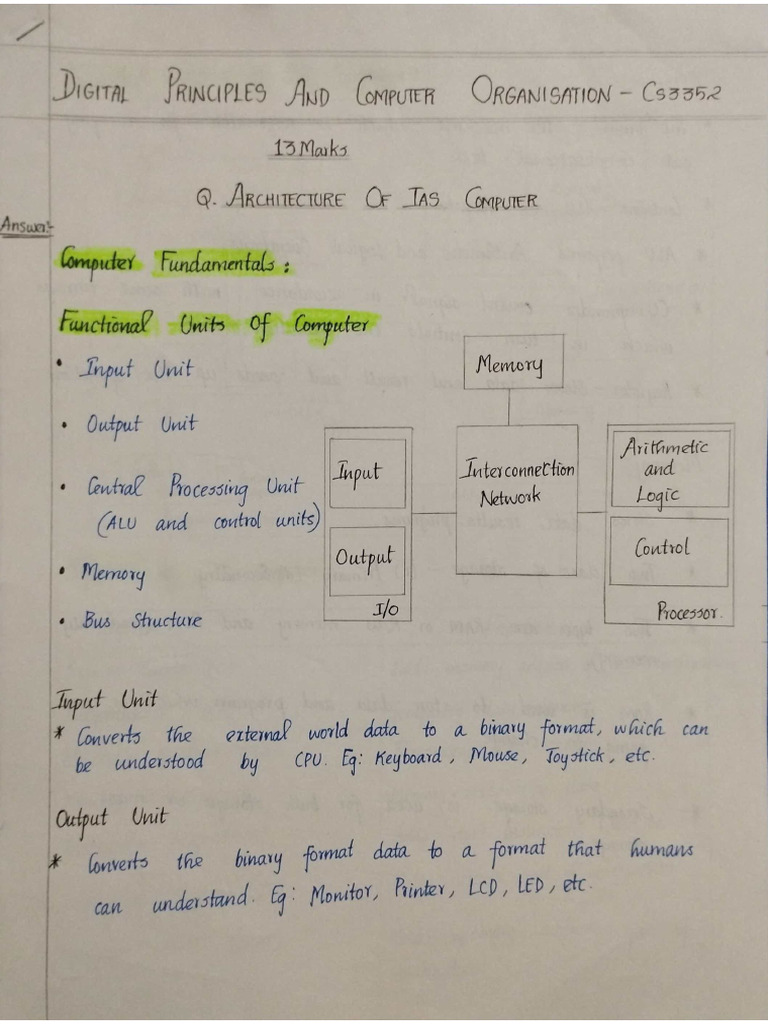 DIGITAL PRINCIPLES AND COMPUTER ORGANISATION - CS3352
13 Marks
Q. ARCHITECTURE OF IAS COMPUTER
Answer:-
Computer Fundamentals:
Functional Units Of Computer
• Input Unit
• Output Unit
• Central Processing Unit
(ALU and control units)
• Memory
• Bus Structure
Memory
Input
Output
I/O
Interconnection
Network
Arithmetic
and
Logic
Control
Processor.
Input Unit
* Converts the external world data to a binary format, which can
be understood by CPU. Eg: Keyboard, Mouse, Joystick, etc.
Output Unit
* Converts the binary format data to a format that humans
can understand. Eg: Monitor, Printer, LCD, LED, etc.